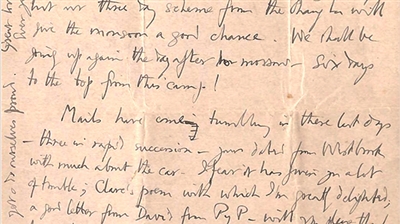 but our three day scheme from the Chang La will
give the monsoon a good chance. We shall be
going up again the day after tomorrow – Six days
to the top from this camp!
Mails have come tumbling in these last days
– three in rapid succession – yours dated from Westbrook
with much about the car. I fear it has given you a lot
of trouble; Clare's poem with which I'm greatly delighted,
a good letter from David from PyP – with
Great love
ourselves proud.